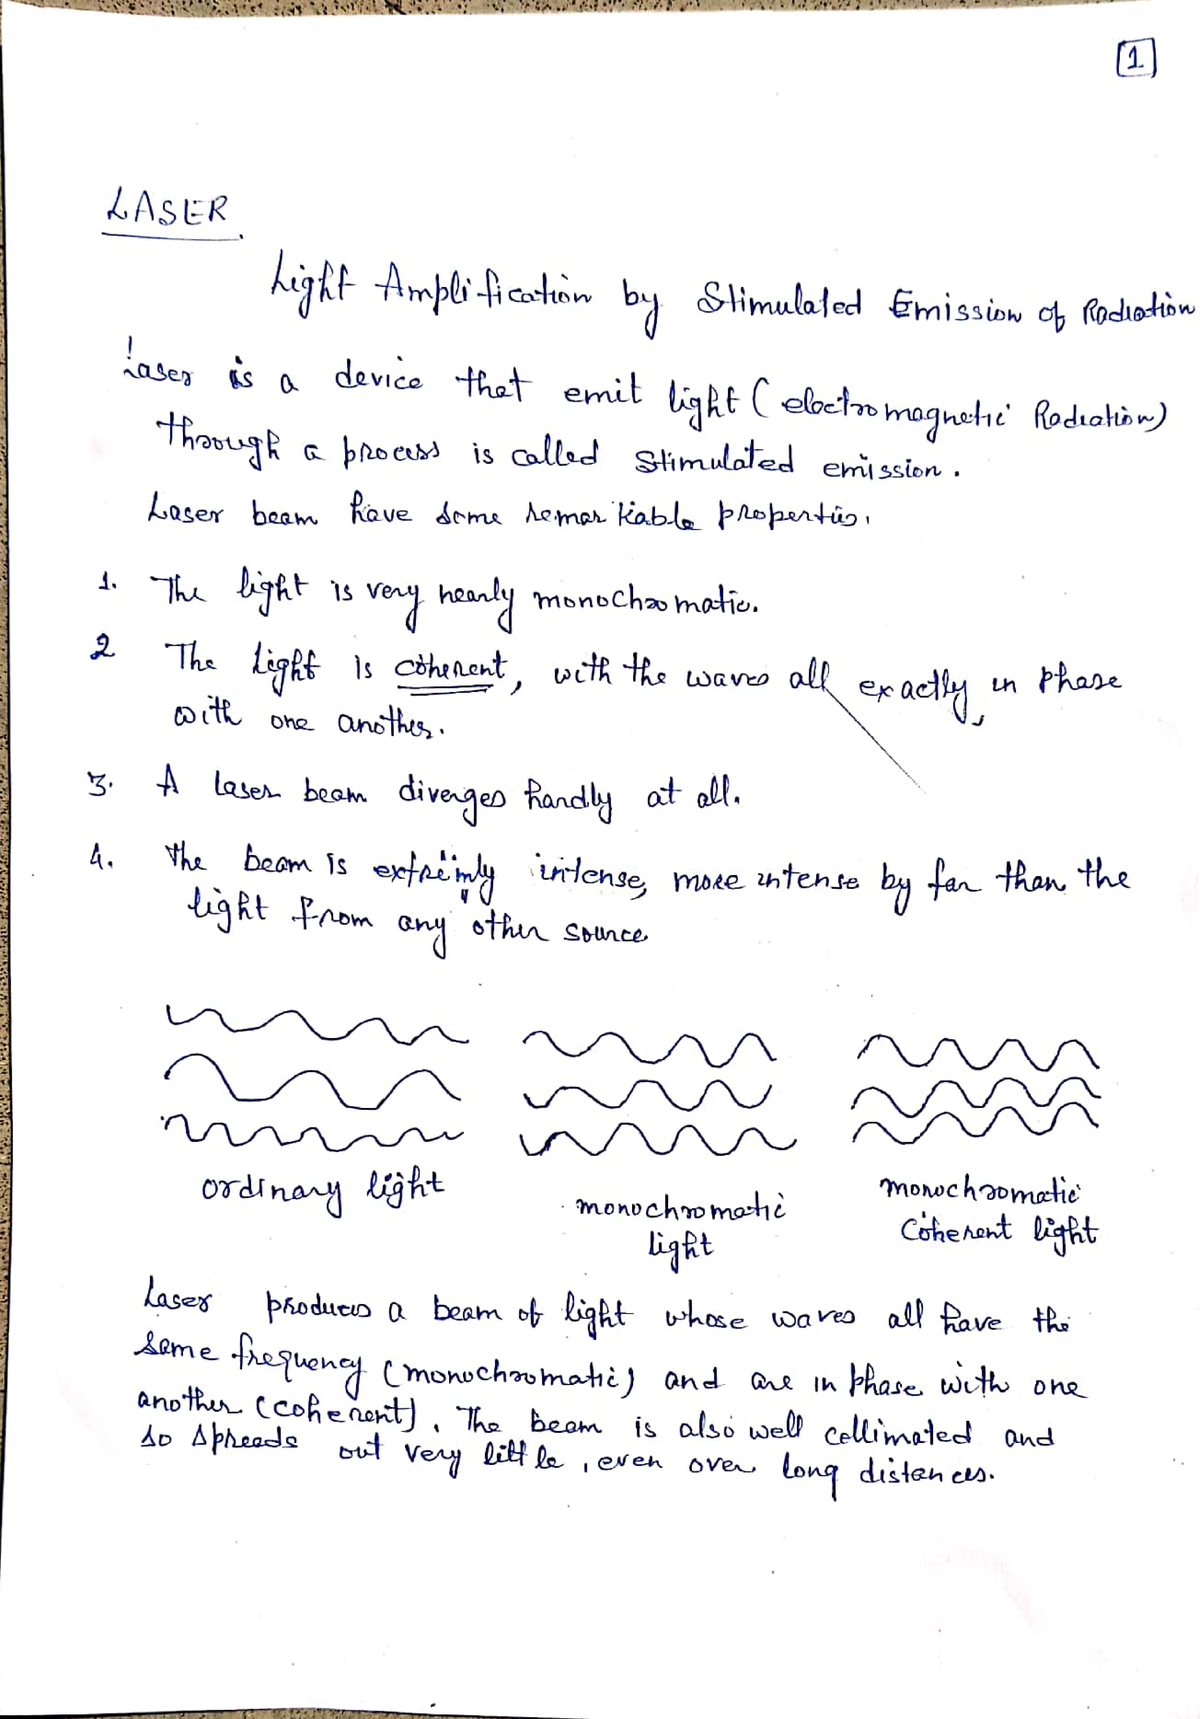 1
LASER
Light Amplification by Stimulated Emission of Radiation
Laser is a device that emit light (electromagnetic Radiation)
through a process is called stimulated emission.
Laser beam have some remarkable properties.
1. The light is very nearly monochromatic.
2 The light is coherent, with the waves all exactly in phase
with one another.
3. A laser beam diverges hardly at all.
4. The beam is extremly intense, more intense by far than the
light from any other source
ordinary light
monochromatic
light
monochromatic
Coherent light
Laser produces a beam of light whose waves all have the
same frequency (monochromatic) and are in phase with one
another (coherent). The beam is also well collimated and
so spreads out very little, even over long distances.